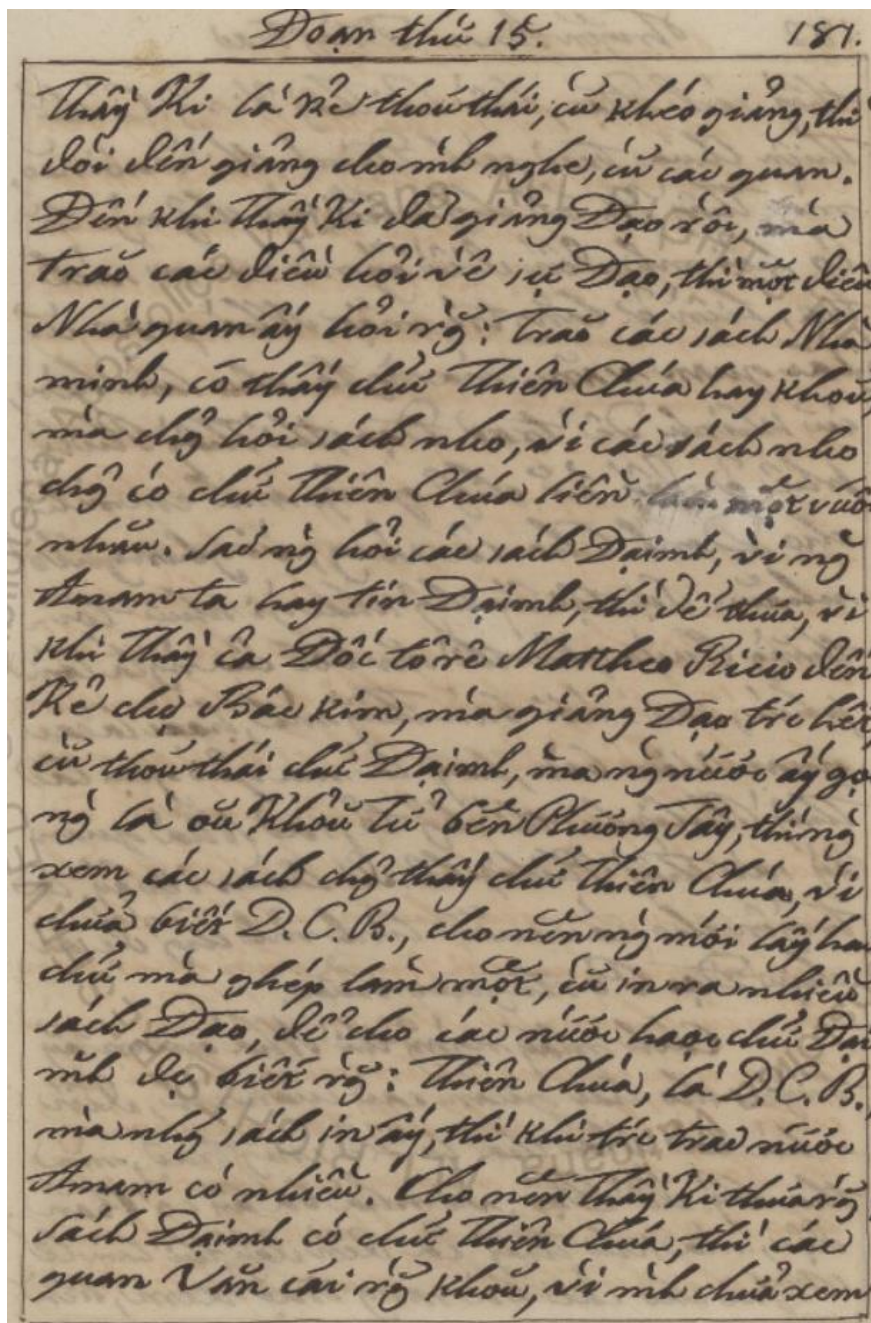 Đoạn thứ 15. 181.
Thầy Ki là kẻ thoũ thái, cũ khéo giảng, thì
đòi đến giảng cho mình nghe, cũ các quan.
Đến khi Thầy Ki đã giảng Đạo rồi, mà
traõ các điều hỏi về sự Đạo, thì một điều
Nhà quan ấy hỏi rằ̃: traõ các sách Nhà
minh, có thấy chữ Thiên Chúa hay khoũ,
mà chẳ hỏi sách nho, vì các sách nho
chẳ có chữ Thiên Chúa liền làm một vuối
nhău. Sao ng̀ hỏi các sách Đạimh, vì ng̃
Annam ta hay tin Đạimh, thì dễ thưa, vì
khi Thầy cả Đốc tôrê Mattheo Ricio đến
Kẻ chợ Bắc Kim, mà giảng Đạo trc hết,
cũ thoũ thái chữ Đạimh, mà ng̀ nước ấy gọi
ng̀ là oũ Khoũ Tử bên Phương Tây, thì ng̀
xem các sách chẳ thấy chữ Thiên Chúa, vì
chưa biết D. C. B., cho nên ng̀ mới lấy hai
chữ mà ghép làm một, cũ in ra nhiều
sách Đạo, để cho các nước haọc chữ Đại
mh đẹ biết rằ̃: Thiên Chúa, là D. C. B.,
mà nhữ sách in ấy, thì khi trc trao nước
Annam có nhiều. Cho nên Thầy Ki thưa rằ̃
Sách Đạimh có chữ Thiên Chúa, thì các
quan Văn cãi rằ̃ khoũ, vì mh chưa xem